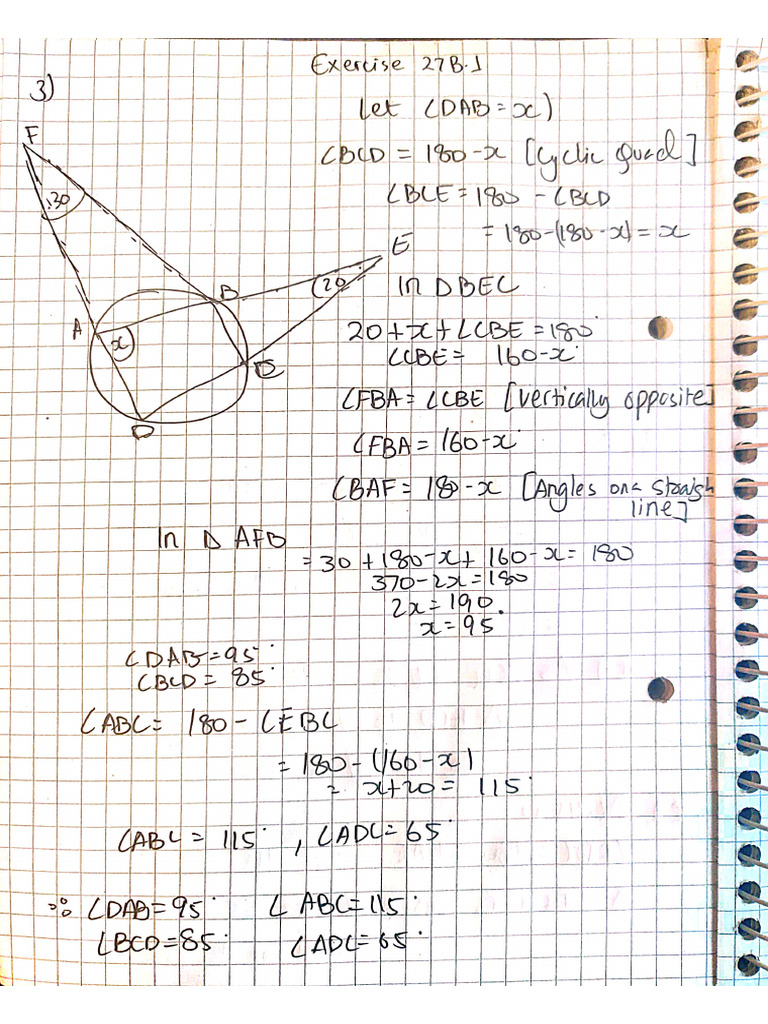 Exercise 27B.1
3)
Let ∠DAB = x)
F
∠BCD = 180 - x [Cyclic Quad]
∠BCE = 180 - ∠BCD
30
= 180-(180-x) = x
E
In Δ BEC
20
B
A
x
20+x+∠CBE = 180°
∠CBE = 160-x°
D
∠FBA = ∠CBE [Vertically opposite]
∠FBA = 160-x°
∠BAF = 180-x [Angles on a straigh
line]
In Δ AFB
= 30 + 180-x + 160-x = 180
370-2x = 180
2x = 190.
x = 95
∠DAB = 95°
∠BCD = 85°
∠ABC = 180 - ∠EBC
= 180-(160-x)
= x+20 = 115°
∠ABC = 115° , ∠ADC = 65°
∴ ∠DAB = 95° ∠ABC = 115°
∠BCD = 85° ∠ADC = 65°